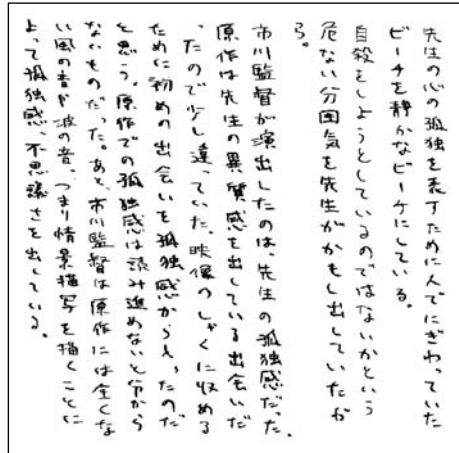 先生の心の孤独を表すために人でにぎわっていた
ビーチを静かなビーチにしている。
自殺をしようとしているのではないかという
危ない分囲気を先生がかもし出していたか
ら。
市川監督が演出したのは、先生の孤独感だった。
原作は先生の異質感を出している出会いだ
ったので少し違っていた。映像のしゃくに収める
ために初めの出会いを孤独感からもったのだ
と思う。原作での孤独感は読み進めないと分から
ないものだった。あと、市川監督は原作には全くな
い風の音や波の音、つまり情景描写を描くことに
よって孤独感、不思議さを出している。